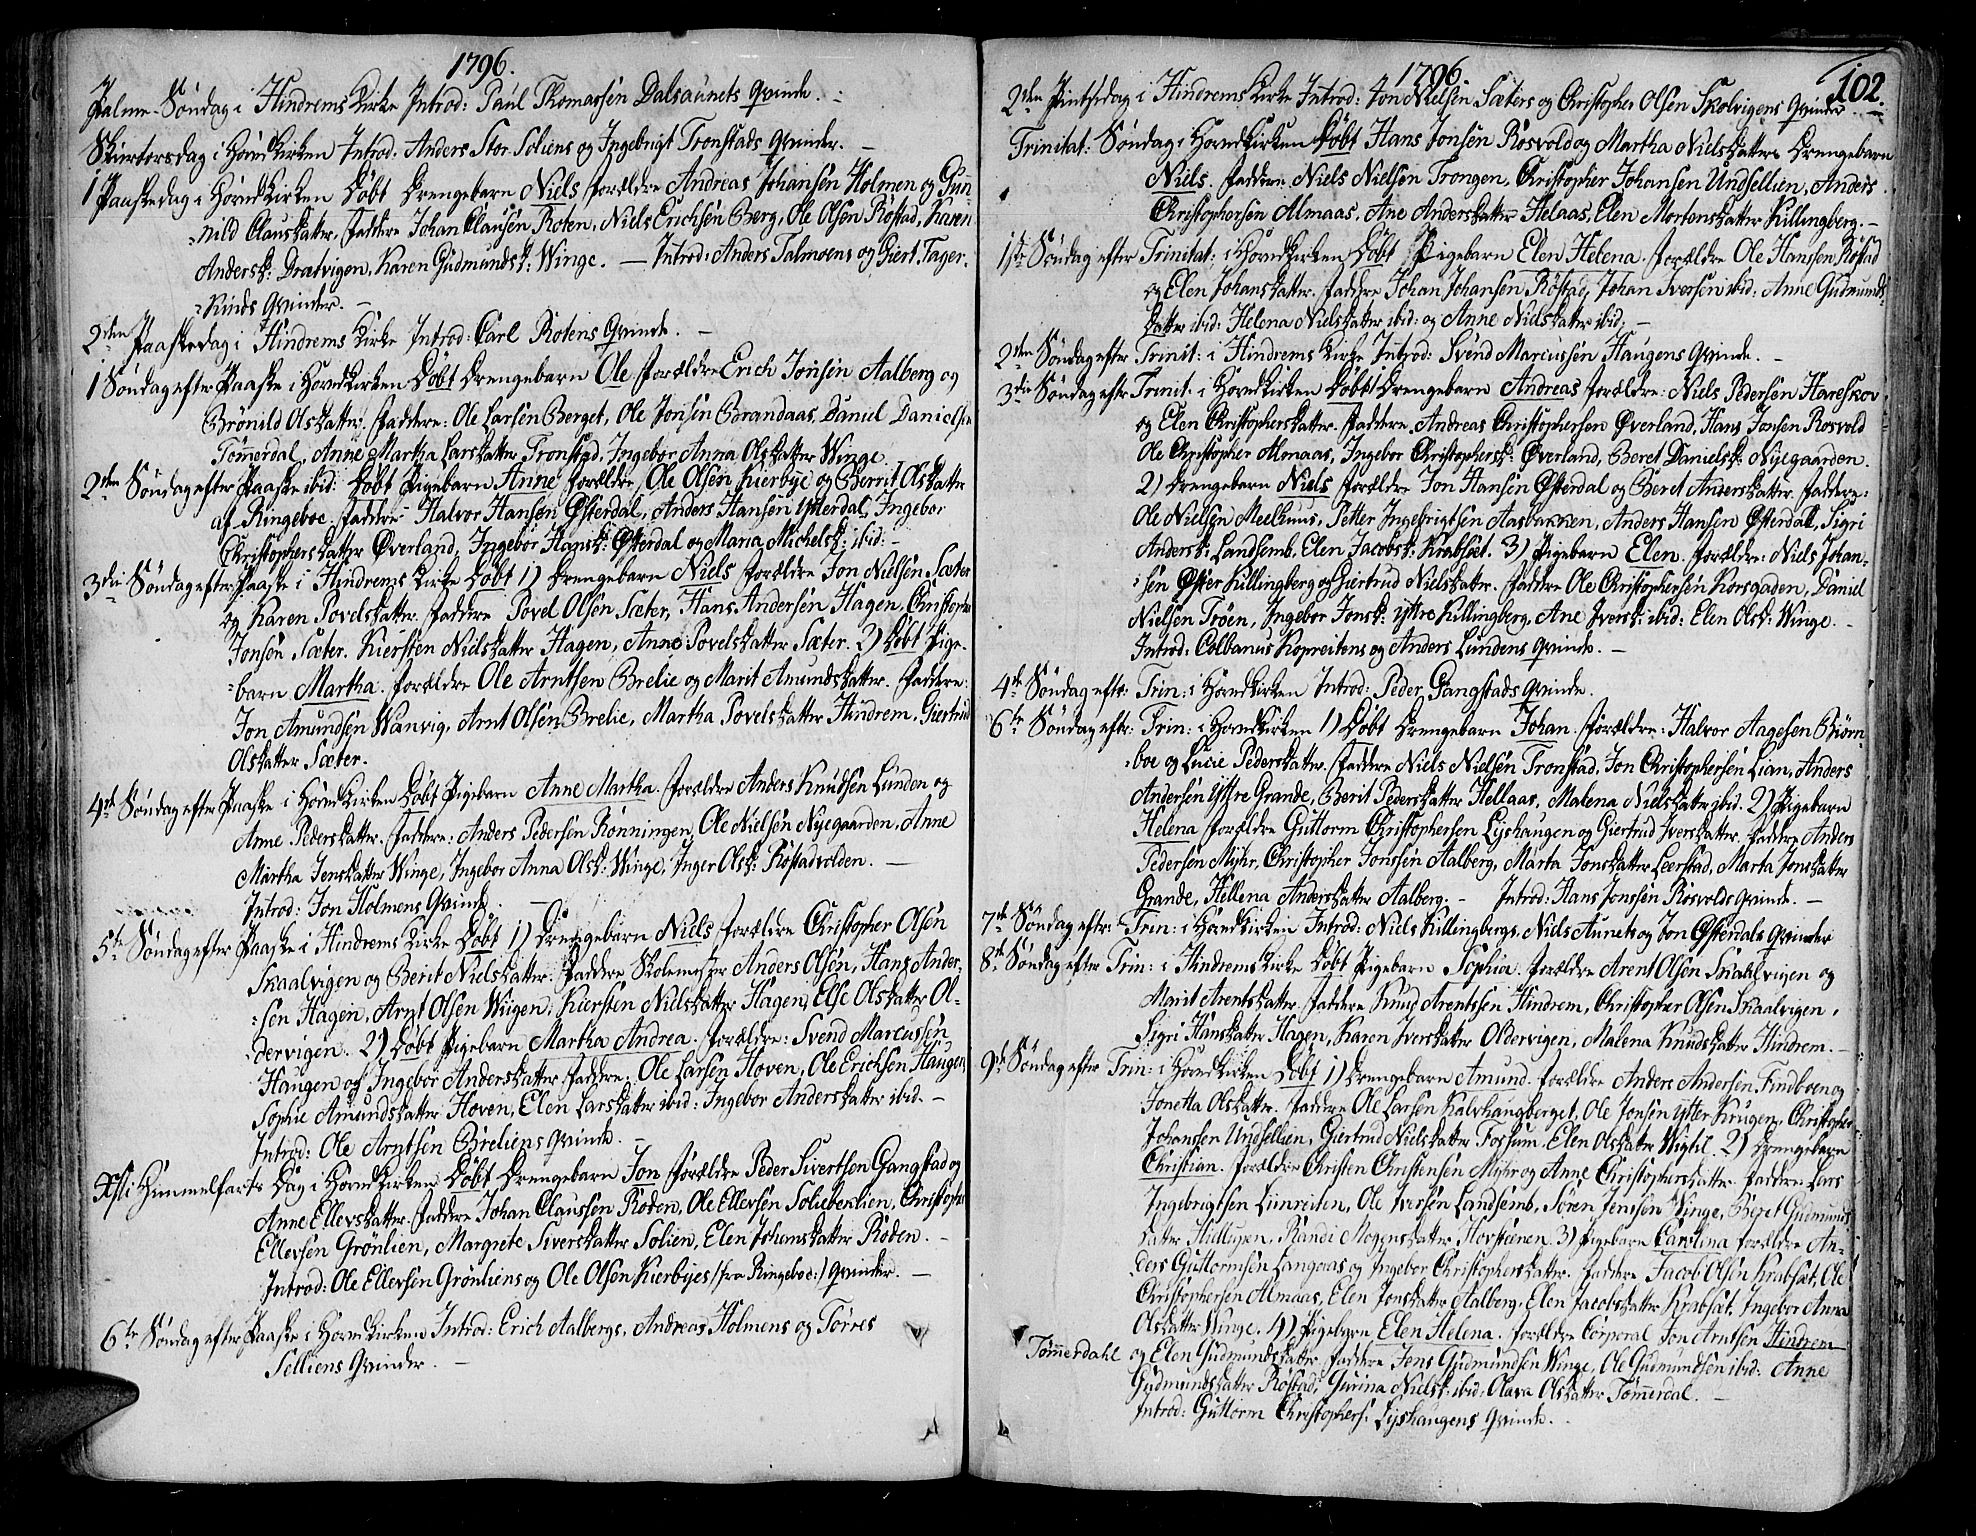 1796.
Palme-Søndag i Hindrems Kirke Introd: Paul Thomassen Dalsaunets Qvinde.
Skiertorsdag i Hovedkirken Introd: Anders Stor Soliens og Ingebrigt Tronstads Qvinder. —
1 Paaskedag i Hovedkirken Døbt Drengebarn Niels, forældre Andreas Johansen Holmen og Gun-
nild Clausdatter, Faddere Johan Clausen Roten, Niels Erichsen Berg, Ole Olsen Røstad, Karen
Andersd: Drætvigen, Karen Gudmundsd: Winge. — Introd: Anders Talmoens og Giert Fager-
Rinds Qvinder. —
2den Paaskedag i Hindrems Kirke Introd: Carl Rotens Qvinde. —
1 Søndag efter Paaske i Hovedkirken Døbt Drengebarn Ole, forældre Erich Jonsen Aalberg og
Brönild Olsdatter. Faddere: Ole Larsen Berget, Ole Jonsen Brandaas, Daniel Danielsen
Tømerdal, Anne Martha Larsdatter Tronstad, Ingebor Anna Olsdatter Winge
2den Søndag efter Paaske ibid: Døbt Pigebarn Anne forældre Ole Olsen Kierbye og Berrit Olsdatter
af Ringeboe. Faddere Halvor Hansen Østerdal, Anders Hansen Ytterdal, Ingebor
Christophersdatter Øverland, Ingebor Hansd: Østerdal og Maria Michelsd: ibid: —
3die Søndag efter Paaske i Hindrems Kirke Døbt 1) Drengebarn Niels forældre Jon Nielsen Sæter
og Karen Povelsdatter. Faddere Povel Olsen Sæter, Hans Andersen Hagen, Christopher
Jonsen Sæter. Kiersten Nielsdatter Hagen, Anne Povelsdatter Sæter. 2) Døbt Pige-
barn Martha. forældre Ole Arntsen Brelie og Marit Amundsdatter. Faddere:
Jon Amundsen Wanvig, Arnt Olsen Brelie, Martha Povelsdatter Hindrem, Giertrud
Olsdatter Sæter.
4de Søndag efter Paaske i Hovedkirken Døbt Pigebarn Anne Martha. forældre Anders Knudsen Lunden og
Anne Pedersdatter. Faddere: Anders Pedersen Rønningen, Ole Nielsen Nyegaarden, Anne
Martha Jensdatter Winge, Ingebor Anna Olsd: Winge, Inger Olsd: Røstadvolden. —
Introd: Jon Holmens Qvinde. —
5te Søndag efter Paaske i Hindrems Kirke Døbt 1) Drengebarn Niels forældre Christopher Olsen
Skaalvigen og Berit Nielsdatter. Faddere Skolemester Anders Olsen, Hans Ander-
sen Hagen, Arnt Olsen Wiigen, Kiersten Nielsdatter Hagen, Else Olsdatter Ol-
dervigen. 2) Døbt Pigebarn Martha Andrea. forældre: Svend Marcussen
Haugen og Ingebor Andersdatter. Faddere: Ole Larsen Hoven, Ole Erichsen Haugen,
Sophie Amundsdatter Hoven, Elen Larsdatter ibid: Ingebor Andersdatter ibid. —
Introd: Ole Arntsen Breliens Qvinde. —
Xsti Himmelfarts Dag i Hovedkirken Døbt Drengebarn Jon forældre Peder Sivertsen Gangstad og
Anne Ellevsdatter. Faddere Johan Claussen Røden, Ole Ellevsen Soliebeklien, Christopher
Ellevsen Grønlien, Margrete Siversdatter Solien, Elen Johansdatter Røden. —
Introd: Ole Ellevsen Grønliens og Ole Olsen Kierbyes /:fra Ringeboe:/ Qvinder. —
6te Søndag efter Paaske i Hovedkirken Introd: Erich Aalbergs, Andreas Holmens og Torres
Selliens Qvinder. —
1796.
102.
2den Pintsedag i Hindrems Kirke Introd: Jon Nielsen Sæters og Christopher Olsen Skolvigens Qvinder —
Trinitat: Søndag i Hovedkirken Døbt Hans Jonsen Rosvold og Martha Nielsdatters Drengebarn
Niels. Faddere Niels Nielsen Trongen, Christopher Johansen Undsellien, Anders
Christophersen Almaas, Ane Andersdatter Helaas, Elen Mortensdatter Killingberg. —
1ste Søndag efter Trinitat: i Hovedkirken Døbt Pigebarn Elen Helena. forældre Ole Hanssen Røstad
og Elen Johansdatter. Faddere Johan Johansen Røstad, Johan Iversen ibid: Anne Gudmunds-
datter ibid: Helena Nielsdatter ibid: og Anne Nielsdatter ibid. —
2den Søndag efter Trinit: i Hindrems Kirke Introd: Svend Marcussen Haugens Qvinde. —
3die Søndag efter Trinit: i Hovedkirken Døbt Drengebarn Andreas forældre: Niels Pedersen Hareskov
og Elen Christophersdatter. Faddere Andreas Christophersen Øverland, Hans Jonsen Rosvold
Ole Christopher Almaas, Ingebor Christophersd: Øverland, Beret Danielsd: Nyegaarden.
2) Drengebarn Niels forældre Jon Hansen Østerdal og Beret Andersdatter. Faddere:
Ole Nielsen Meelhuus, Petter Ingebrigtsen Aasbakken, Anders Hansen Østerdal, Sigri
Andersd: Landsemb, Elen Jacobsd: Krabsæt. 3) Pigebarn Elen. forældre: Niels Johan-
sen Øster Killingberg og Giertrud Nielsdatter. Faddere Ole Christophersen Korsgaden, Daniel
Nielsen Trøen, Ingebor Jonsd: Yttre Killingberg, Ane Iversd: ibid: Elen Olsd: Winge. —
Introd: Colbanus Kopreitens og Anders Lundens Qvinde. —
4de Søndag eft: Trin: i Hovedkirken Introd: Peder Gangstads Qvinde.
6te Søndag eft: Trin: i Hovedkirken 1) Døbt Drengebarn Johan. forældre: Halvor Aagesen Biørn-
boe og Lucie Pedersdatter. Faddere Niels Nielsen Tronstad, Jon Christophersen Lian, Anders
Andersen Yttre Grande, Berit Pedersdatter Hellaas, Malena Nielsdatter ibid. 2) Pigebarn
Helena forældre Guttorm Christophersen Lyshaugen og Giertrud Iversdatter. Faddere Anders
Pedersen Myhr, Christopher Jonssen Aalberg, Marta Jonsdatter Leerstad, Marta Jonsdatter
Grande, Hellena Andersdatter Aalberg. — Introd: Hans Jonssen Rosvolds Qvinde. —
7de Søndag efter Trin: i Hovedkirken Introd: Niels Killingbergs, Niels Aunets og Jon Østerdals Qvinder
8de Søndag efter Trin: i Hindrems Kirke Døbt Pigebarn Sophia. forældre Arent Olsen Skaalvigen og
Marit Arentsdatter. Faddere Knud Arentsen Hindrem, Christopher Olsen Skaalvigen,
Sigri Hansdatter Hagen, Karen Iversdatter Oldervigen, Malena Knudsdatter Hindrem. —
9de Søndag efter Trin: i Hovedkirken Døbt 1) Drengebarn Amund. forældre Anders Andersen Findboen og
Jonetta Olsdatter. Faddere Ole Larsen Kalvhaugberget, Ole Jonsen ytter Krugen, Christopher
Johanssen Undsellien, Giertrud Nielsdatter Fossum. Elen Olsdatter Wigtil. 2) Drengebarn
Christian. forældre Christen Christensen Myhr og Anne Christophersdatter. Faddere Lars
Ingebrigtsen Liinreiten, Ole Iversen Landsemb, Søren Jenssen Winge, Beret Gudmunds-
datter Hidlugen, Randi Mogensdatter Hovsteenen. 3) Pigebarn Carolina forældre An-
ders Guttormsen Langaas og Ingebor Christophersdatter. Faddere Jacob Olsen Krabsæt, Ole
Christophersen Almaas, Elen Jonsdatter Aalberg, Elen Jacobsdatter Krabsæt, Ingebor Anna
Olsdatter Winge. 4) Pigebarn Elen Helena. forældre Corporal Jon Arntsen Hindrem
Tømerdahl og Elen Gudmundsdatter. Faddere Jens Gudmundsen Winge, Ole Gudmundsen ibid: Anne
Gudmundsdatter Røstad, Gurina Nielsd: ibid: Olava Olsdatter Tømerdal. —
Introd: Guttorm Christophers: Lyshaugens Qvinde. —